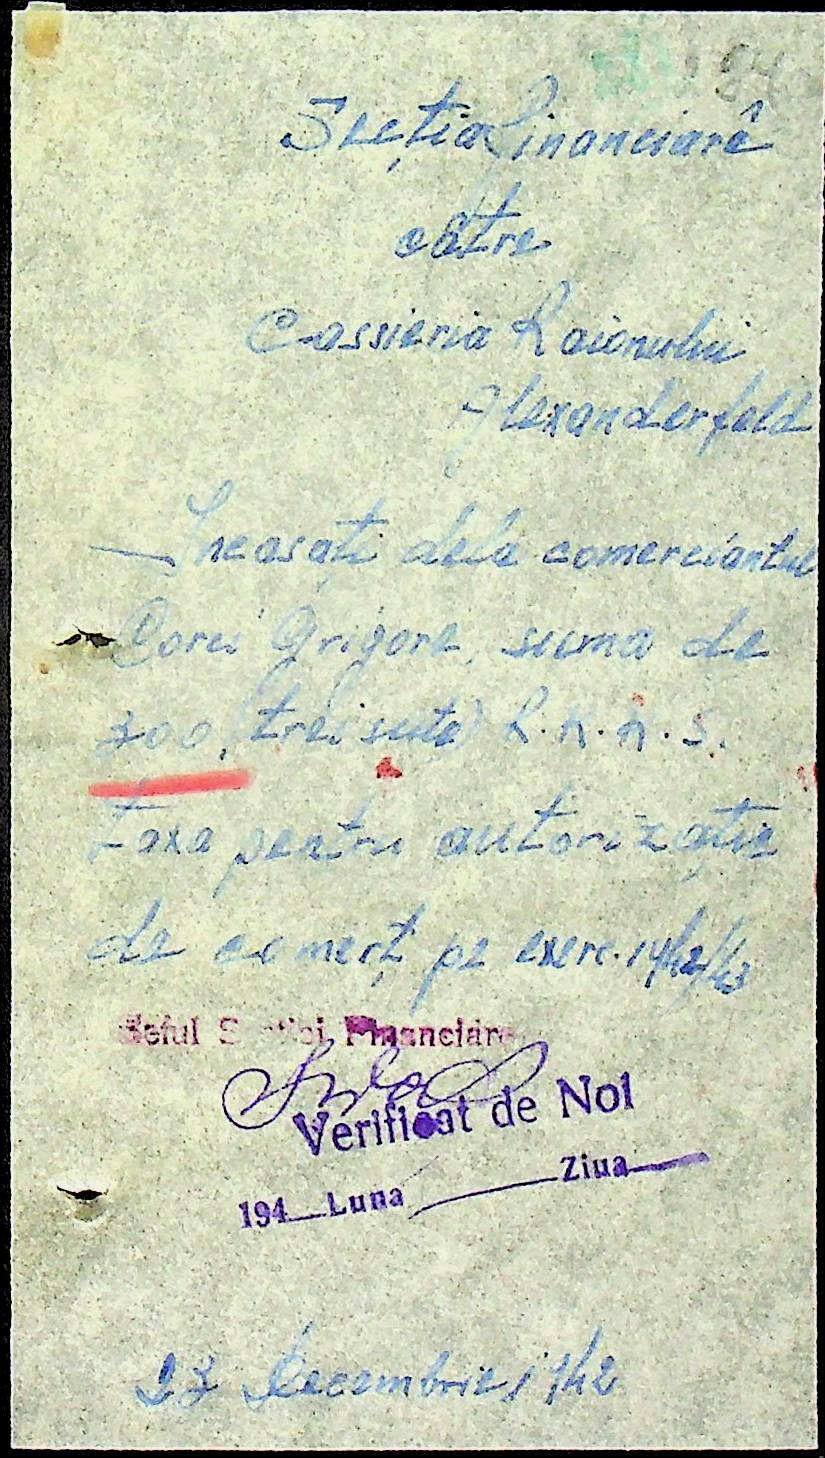 284
Secția financiară
către
Cassieria Raionului
Alexanderfeld
Încasați dela comerciantul
Corci Grigore, suma de
300, (trei sute) R.K.K.S.
Taxa pentru autorizație
de comerț pe exerc. 1942/43
Șeful Secției Financiare
Verificat de Noi
194 Luna Ziua
23 Decembrie 1942